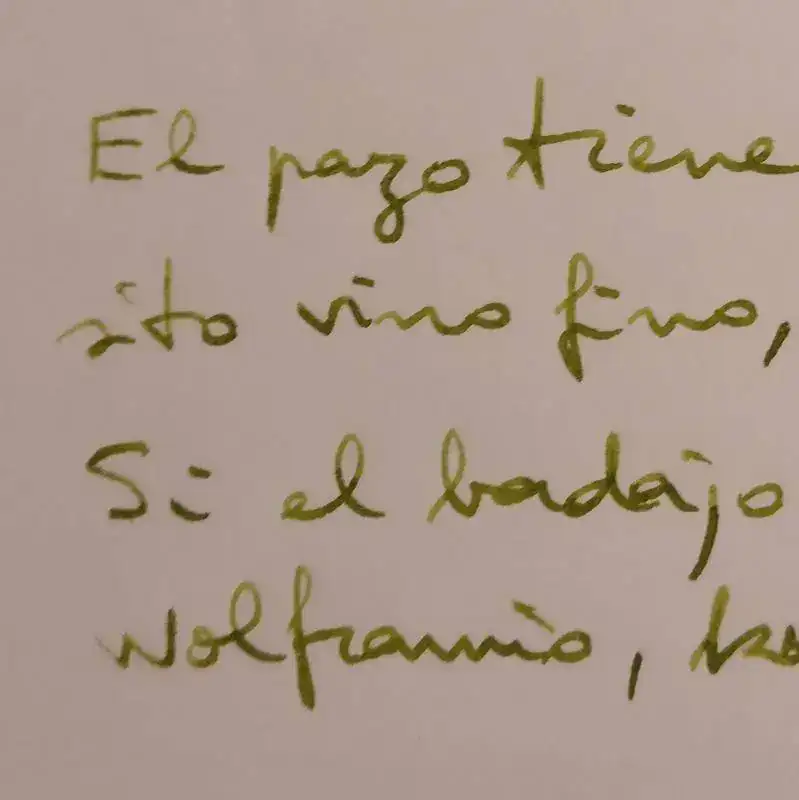 El pazo tiene
sito vino fino,
Si el badajo
wolframio,